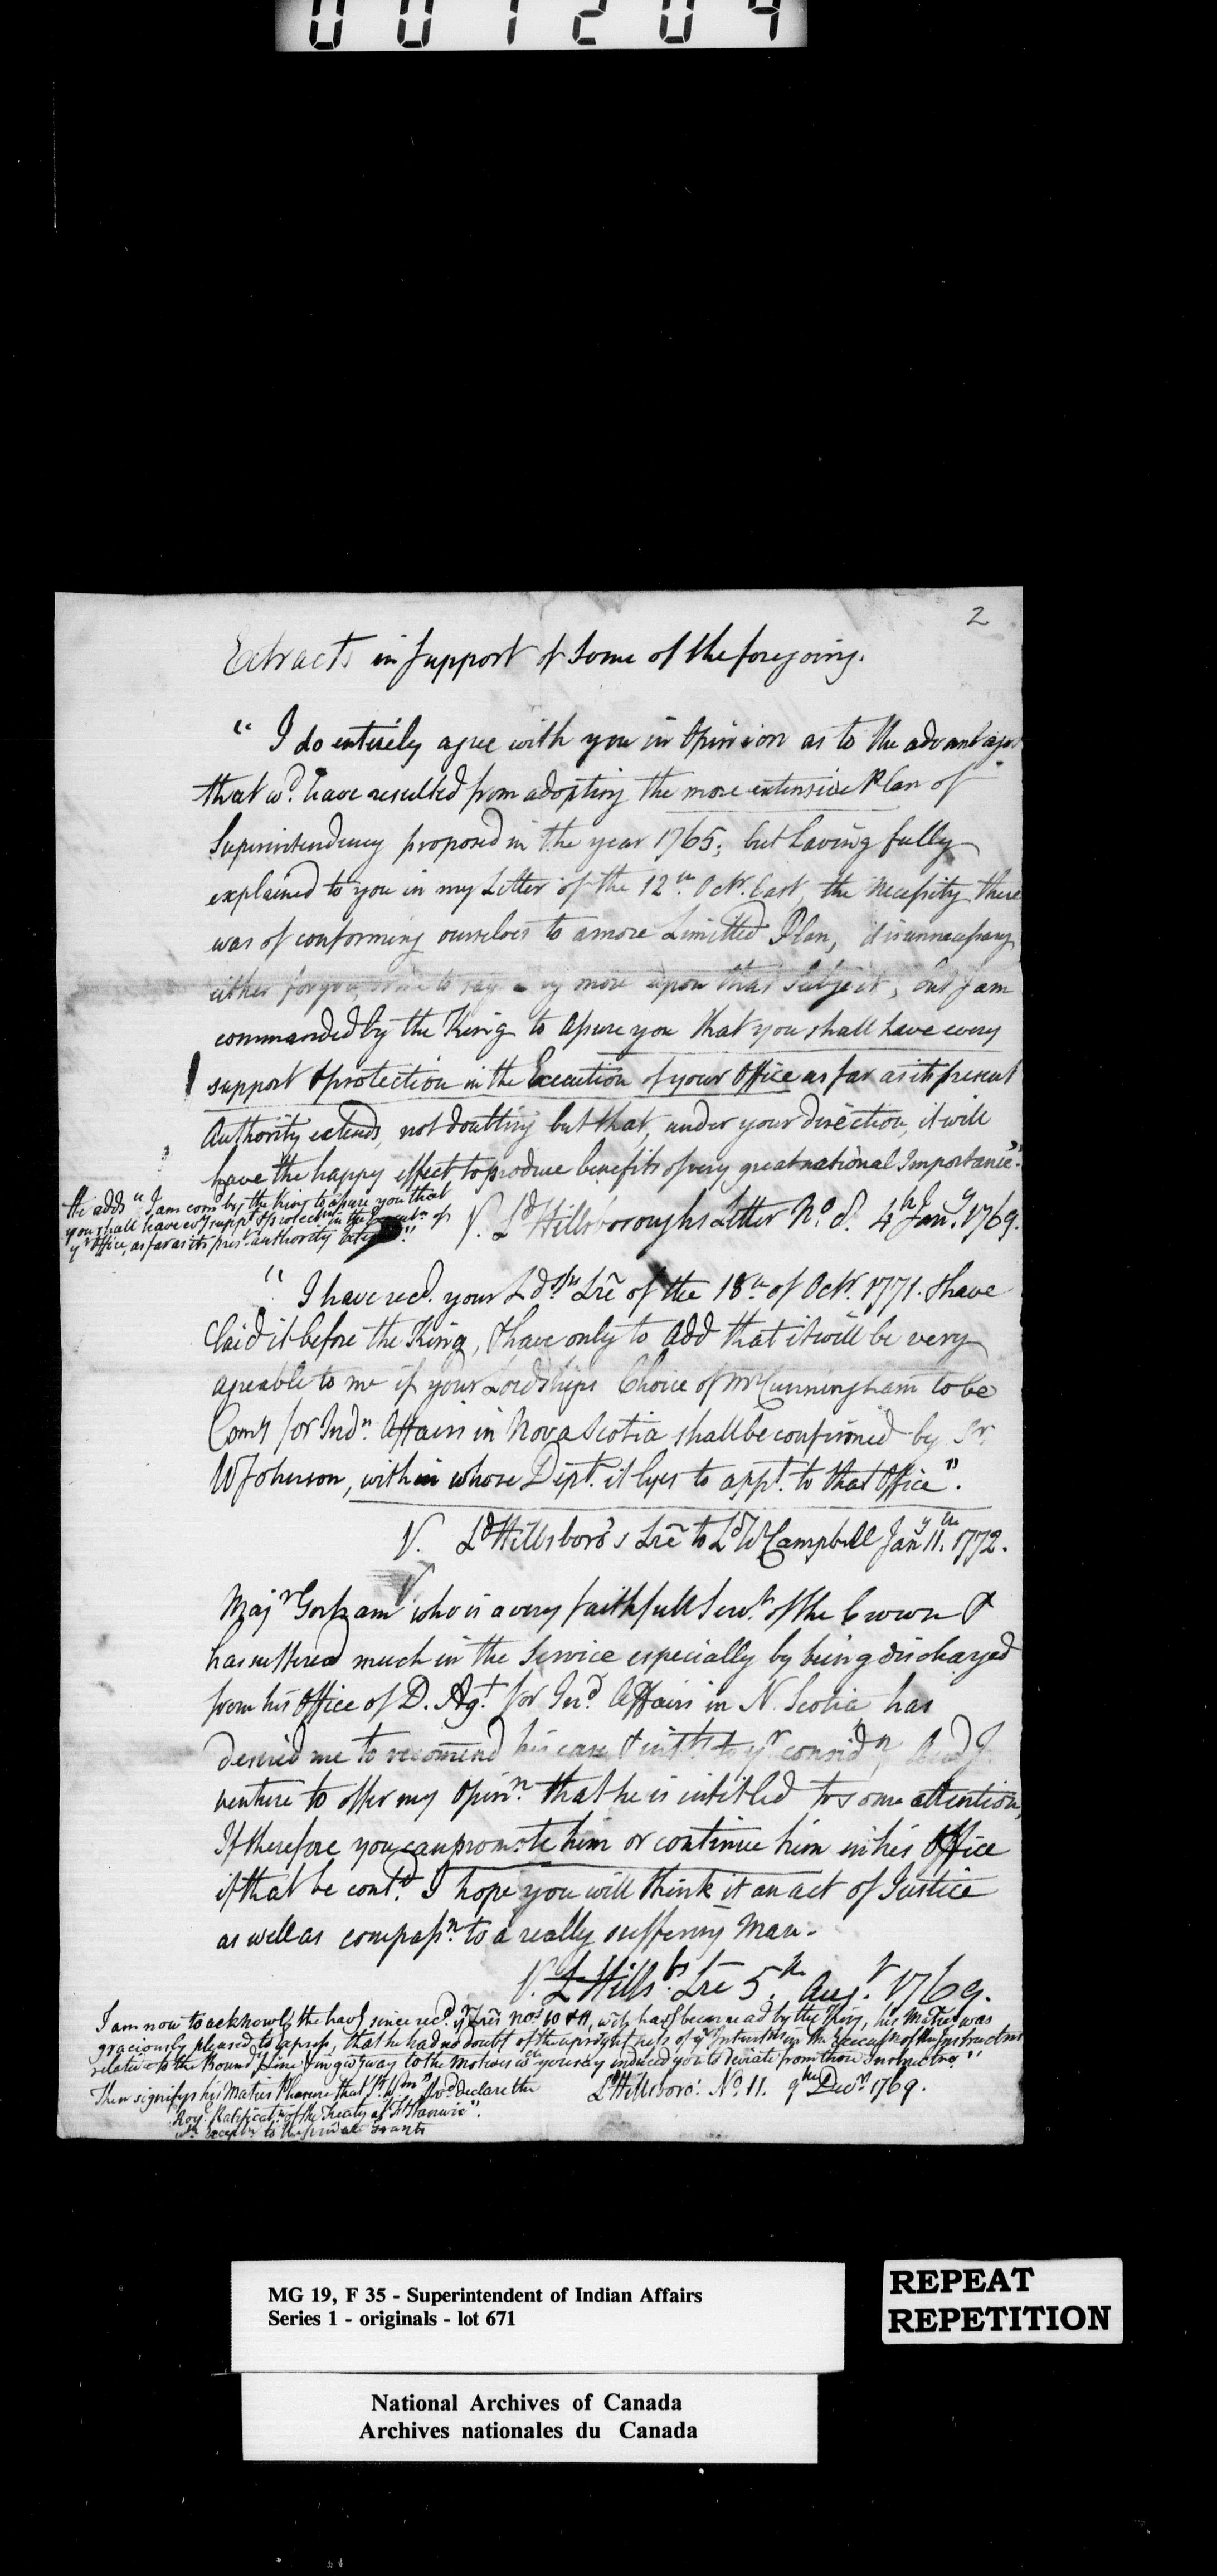 001204
2
Extracts in support of some of the foregoing.
" I do entirely agree with you in Opinion as to the advantages
that wd. have resulted from adopting the more extensive Plan of
Superintendency proposed in the year 1765; but having fully
explained to you in my Letter of the 12th. Octr. last, the Necessity there
was of conforming ourselves to a more Limitted Plan, it is unnecessary
either for you, or me to say any more upon that Subject, but I am
commanded by the King to assure you that you shall have every
support & protection in the Execution of your Office as far as its present
Authority extends, not doubting but that, under your direction, it will
have the happy effect to produce benefits of very great national Importance."
He adds "I am comd by the King to assure you that
you shall have evy suppt & protectn in the Executn of
yr Office, as far as its prest authority extends"
V. Ld Hillsboroughs Letter No. 8. 4th Jany. 1769.
" I have recd. your Ldshs Lre of the 18th of Octr. 1771. & have
laid it before the King, & have only to add that it will be very
agreable to me if your Lordships Choice of Mr Cunningham to be
Comy for Indn. Affairs in Nova Scotia shall be confirmed by Sr.
W Johnson, within whose Dept. it lyes to appt. to that Office".
V. Ld Hillsboro's Lre to Ld W Campbell Jany 11th. 1772.
Majr Gorham who is a very faithfull Servt. of the Crown &
has suffered much in the Service especially by being discharged
from his Office of D. Agt. for Ind Affairs in N. Scotia has
desired me to recomend his case & to yr considn, And I
venture to offer my Opinn. that he is intitled to some attention,
If therefore you can promote him or continue him in his Office
if that be contd. I hope you will think it an act of Justice
as well as compassn. to a really suffering Man.
V. L Hillsbs. Lre 5th. Augt 1769.
I am now to acknowlg the havg since recd. yr Lres Nos. 10 & 11, wch havg been read by the King, his Matie was
graciously pleased to express, that he had no doubt of the uprightness of yr Intentns in the Executn of the Instructns
relative to the Boundy Line givg way to the Motives wch you say induced you to deviate from those Instructns"
Then signifys his Maties Pleasure that Sr Wm shod. declare the
Ld Hillsboro'. No. 11. 9th Decr. 1769.
Roy. Ratificatn. of the Treaty at Ft Stanwix".
wth Exceptn to the private Grants
MG 19, F 35 - Superintendent of Indian Affairs
Series 1 - originals - lot 671
REPEAT
REPETITION
National Archives of Canada
Archives nationales du Canada